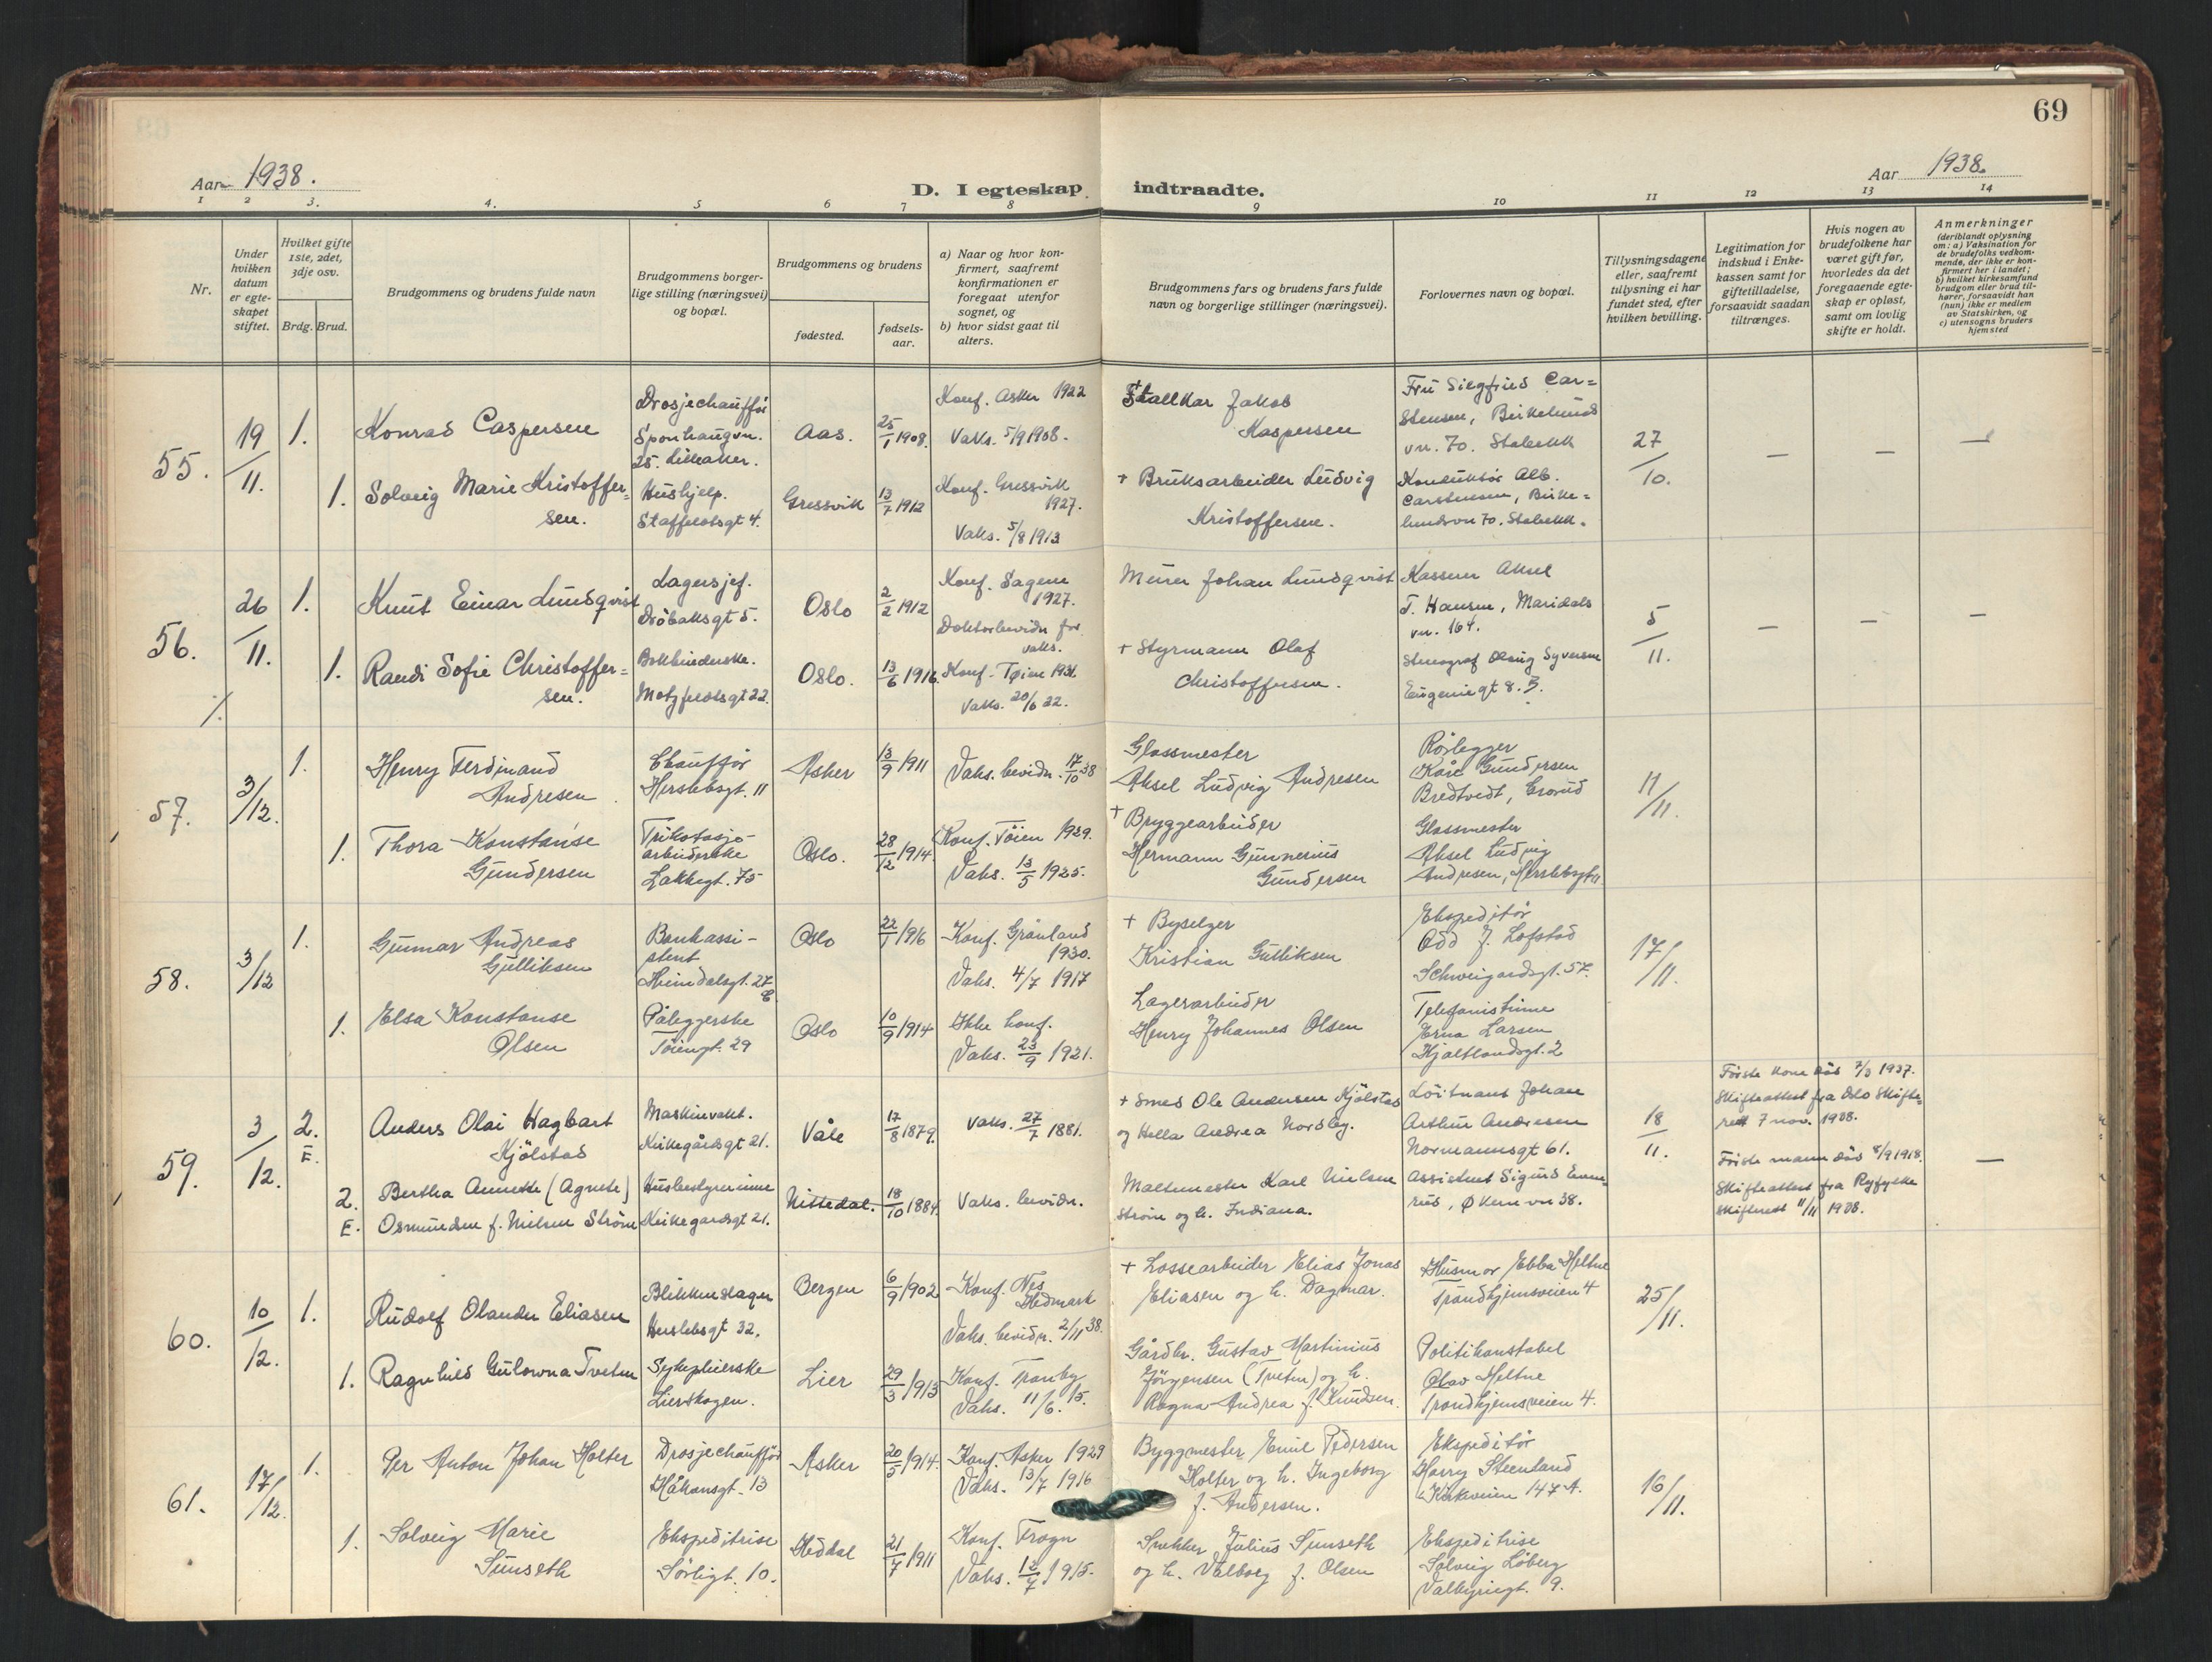 69
Aar 1938.
D. I egteskap indtraadte.
Aar 1938.
1 2 3. 4. 5 6 7 8 9 10 11 12 13 14
Nr.
Under hvilken datum er egteskapet stiftet.
Hvilket gifte 1ste, 2det, 3dje osv.
Brdg. Brud.
Brudgommens og brudens fulde navn
Brudgommens borgerlige stilling (næringsvei) og bopæl.
Brudgommens og brudens
fødested.
fødselsaar.
a) Naar og hvor konfirmert, saafremt konfirmationen er foregaat utenfor sognet, og
b) hvor sidst gaat til alters.
Brudgommens fars og brudens fars fulde navn og borgerlige stillinger (næringsvei).
Forlovernes navn og bopæl.
Tillysningsdagene eller, saafremt tillysning ei har fundet sted, efter hvilken bevilling.
Legitimation for indskud i Enkekassen samt for giftetilladelse, forsaavidt saadan tiltrænges.
Hvis nogen av brudefolkene har været gift før, hvorledes da det foregaaende egteskap er opløst, samt om lovlig skifte er holdt.
Anmerkninger
(deriblandt oplysning om: a) Vaksination for de brudefolks vedkommende, der ikke er konfirmert her i landet; b) hvilket kirkesamfund brudgom eller brud tilhører, forsaavidt han (hun) ikke er medlem av Statskirken, og c) utensogns bruders hjemsted
55.
19/11.
1.
Konrad Caspersen
Drosjechauffør
Sponhaugvn.
25. Lilleaker.
Aas.
25/1 1908.
Konf. Asker 1922
Vaks. 5/9 1908.
Stallkar Jakob
Kaspersen
Fru Siegfried Car=
stensen, Birkelunds
vn. 70. Stabekk
27/10.
—
—
—
1.
Solveig Marie Kristoffer=
sen.
Hushjelp.
Staffeldtsgt 4.
Gressvik
13/7 1912
Konf. Gressvik
1927.
Vaks. 5/8 1913
+ Bruksarbeider Ludvig
Kristoffersen.
Konduktør Alb.
Carstensen, Birke=
lundsvn 70. Stabekk.
56.
26/11.
1.
Knut Einar Lundqvist
Lagersjef.
Drøbaksgt 5.
Oslo
2/2 1912
Konf. Sagene
1927.
Doktorbevidn for
vaks.
Murer Johan Lundqvist
Kasserer Aksel
T. Hansen, Maridals
vn. 164.
5/11.
—
—
—
1.
Randi Sofie Christoffer=
sen.
Bokbinderske.
Motzfeldtsgt 22.
Oslo.
13/6 1916.
Konf. Tøien 1931.
Vaks. 20/6 22.
+ Styrmann Olaf
Christoffersen.
Stenograf Olaug Syversen
Eugeniegt 8. B.
57.
3/12.
1.
Henry Ferdinand
Andresen
Chauffør
Herslebsgt. 11
Asker
13/9 1911
Vaks. bevidn. 17/10 38
Glassmester
Aksel Ludvig Andresen
Rørlegger
Kåre Gundersen
Bredtvedt, Grorud
11/11.
1.
Thora Konstanse
Gundersen
Trikotasje-
arbeiderske
Lakkegt. 75
Oslo.
28/12 1914
Konf. Tøien 1929.
Vaks. 13/5 1925.
+ Bryggearbeider
Hermann Gunnerius
Gundersen
Glassmester
Aksel Ludvig
Andresen, Herslebsgt 11
58.
3/12
1.
Gunnar Andreas
Gulliksen
Bankassi-
stent
Heimdalsgt. 27
Oslo
22/1 1916
Konf. Grønland
1930.
Vaks. 4/7 1917
+ Byselger
Kristian Gulliksen
Ekspeditør
Odd J. Lofstad
Schweigaardsgt. 57.
17/11.
1.
Elsa Konstanse
Olsen
Påleggerske
Tøiengt. 29
Oslo
10/9 1914
Ikke konf.
Vaks. 23/9 1921.
Lagerarbeider
Henry Johannes Olsen
Telefonistinne
Erna Larsen
Hjaltlandsgt. 2
59.
3/12.
2.
E.
Anders Olai Hagbart
Kjølstad
Maskinvakt.
Kirkegårdsgt 21.
Våle
17/8 1879.
Vaks. 27/7 1881.
+ Smed Ole Andersen Kjølstad
og Hella Andrea Nordby.
Løitnant Johan
Arthur Andresen
Normannsgt 61.
18/11.
Første kone død 7/3 1937.
Skifteattest fra Oslo Skifte=
rett 7 nov. 1938.
2.
E.
Bertha Annette (Agnete)
Osmundsen f. Nielsen Strøm
Husbestyrerinne
Kirkegårdsgt 21.
Nittedal.
18/10 1884.
Vaks. bevidn.
Maltmester Karl Nielsen
Strøm og h. Indiana.
Assistent Sigurd
, Økernvn 38.
Første mann død 8/9 1918.
Skifteattest fra Ryfylke
Skifterett 11/11 1938.
—
60.
10/12.
1.
Rudolf Olander Eliasen
Blikkenslager
Herslebsgt 32.
Bergen
6/9 1902
Konf. Nes
Hedmark
Vaks. bevidn. 2/11 38.
+ Lossearbeider Elias Jonas
Eliasen og h. Dagmar.
Husmor Ebba Heltne
Trondhjemsveien 4
25/11.
1.
Ragnhild Gulowna Tveten
Sykepleierske
Lierskogen.
Lier
29/3 1913
Konf. Tranby
Vaks. 11/6. 15.
Gårdbr. Gustav Martinius
Jørgensen (Tveten) og h.
Ragna Andrea f. Knudsen.
Politikonstabel
Olav Heltne
Trondhjemsveien 4.
61.
17/12.
1.
Per Anton Johan Holter
Drosjechauffør
Håkonsgt. 13
Asker
20/5 1914.
Konf. Asker 1929
Vaks. 13/7 1916
Byggmester Emil Pedersen
Holter og h. Ingeborg
f. Andersen.
Ekspeditør
Harry Steenland
Kirkeveien 147 A.
16/11.
1.
Solveig Marie
Sunseth
Ekspeditrise
Sørligt. 10.
Heddal
21/7 1911
Konf. Frogn
Vaks. 12/7 1915.
Snekker Julius Sunseth
og h. Valborg f. Olsen
Ekspeditrise
Solveig Løberg
Valkyriegt. 9.